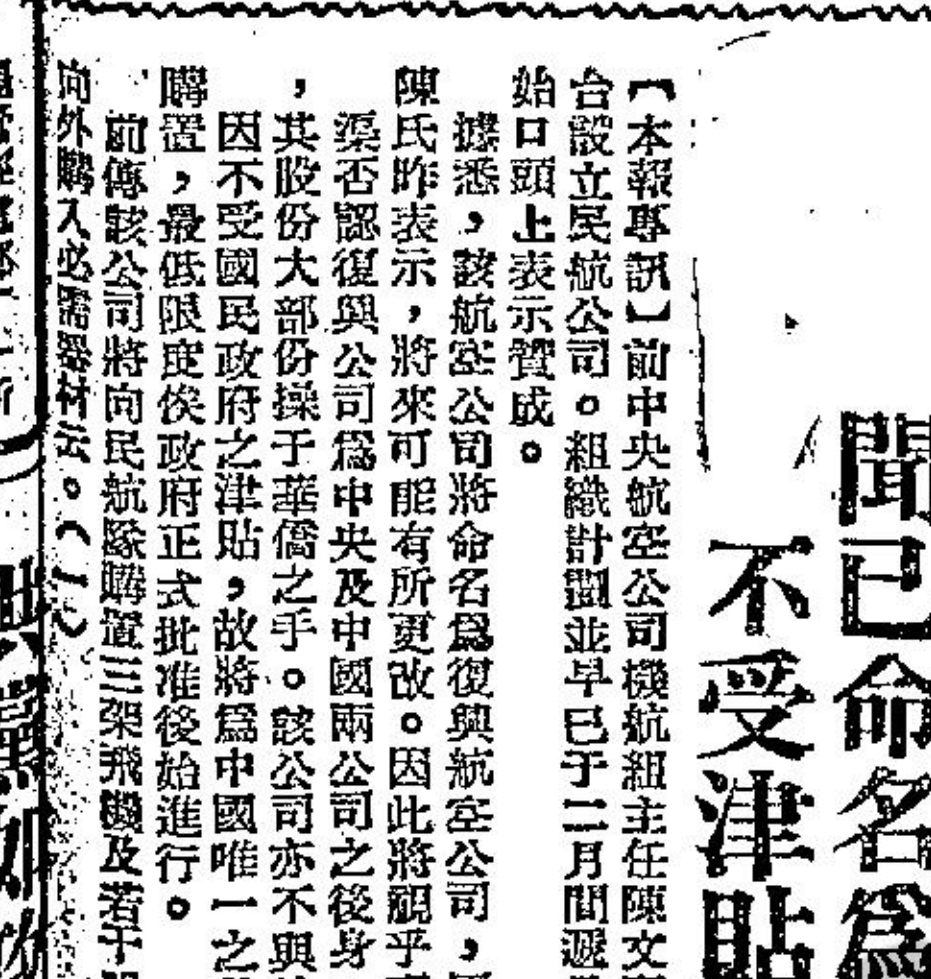 聞已命名爲
不受津貼
【本報專訊】前中央航空公司機航組主任陳文
台設立民航公司。組織計劃並早已于二月間遞
始口頭上表示贊成。
據悉,該航空公司將命名爲復興航空公司,
陳氏昨表示,將來可能有所更改。因此將視乎
渠否認復興公司爲中央及中國兩公司之後身
,其股份大部份操于華僑之手。該公司亦不與
因不受國民政府之津貼,故將爲中國唯一之
購置,最低限度俟政府正式批准後始進行。
前傳該公司將向民航隊購置三架飛機及若干
向外購入必需器材云。(一)